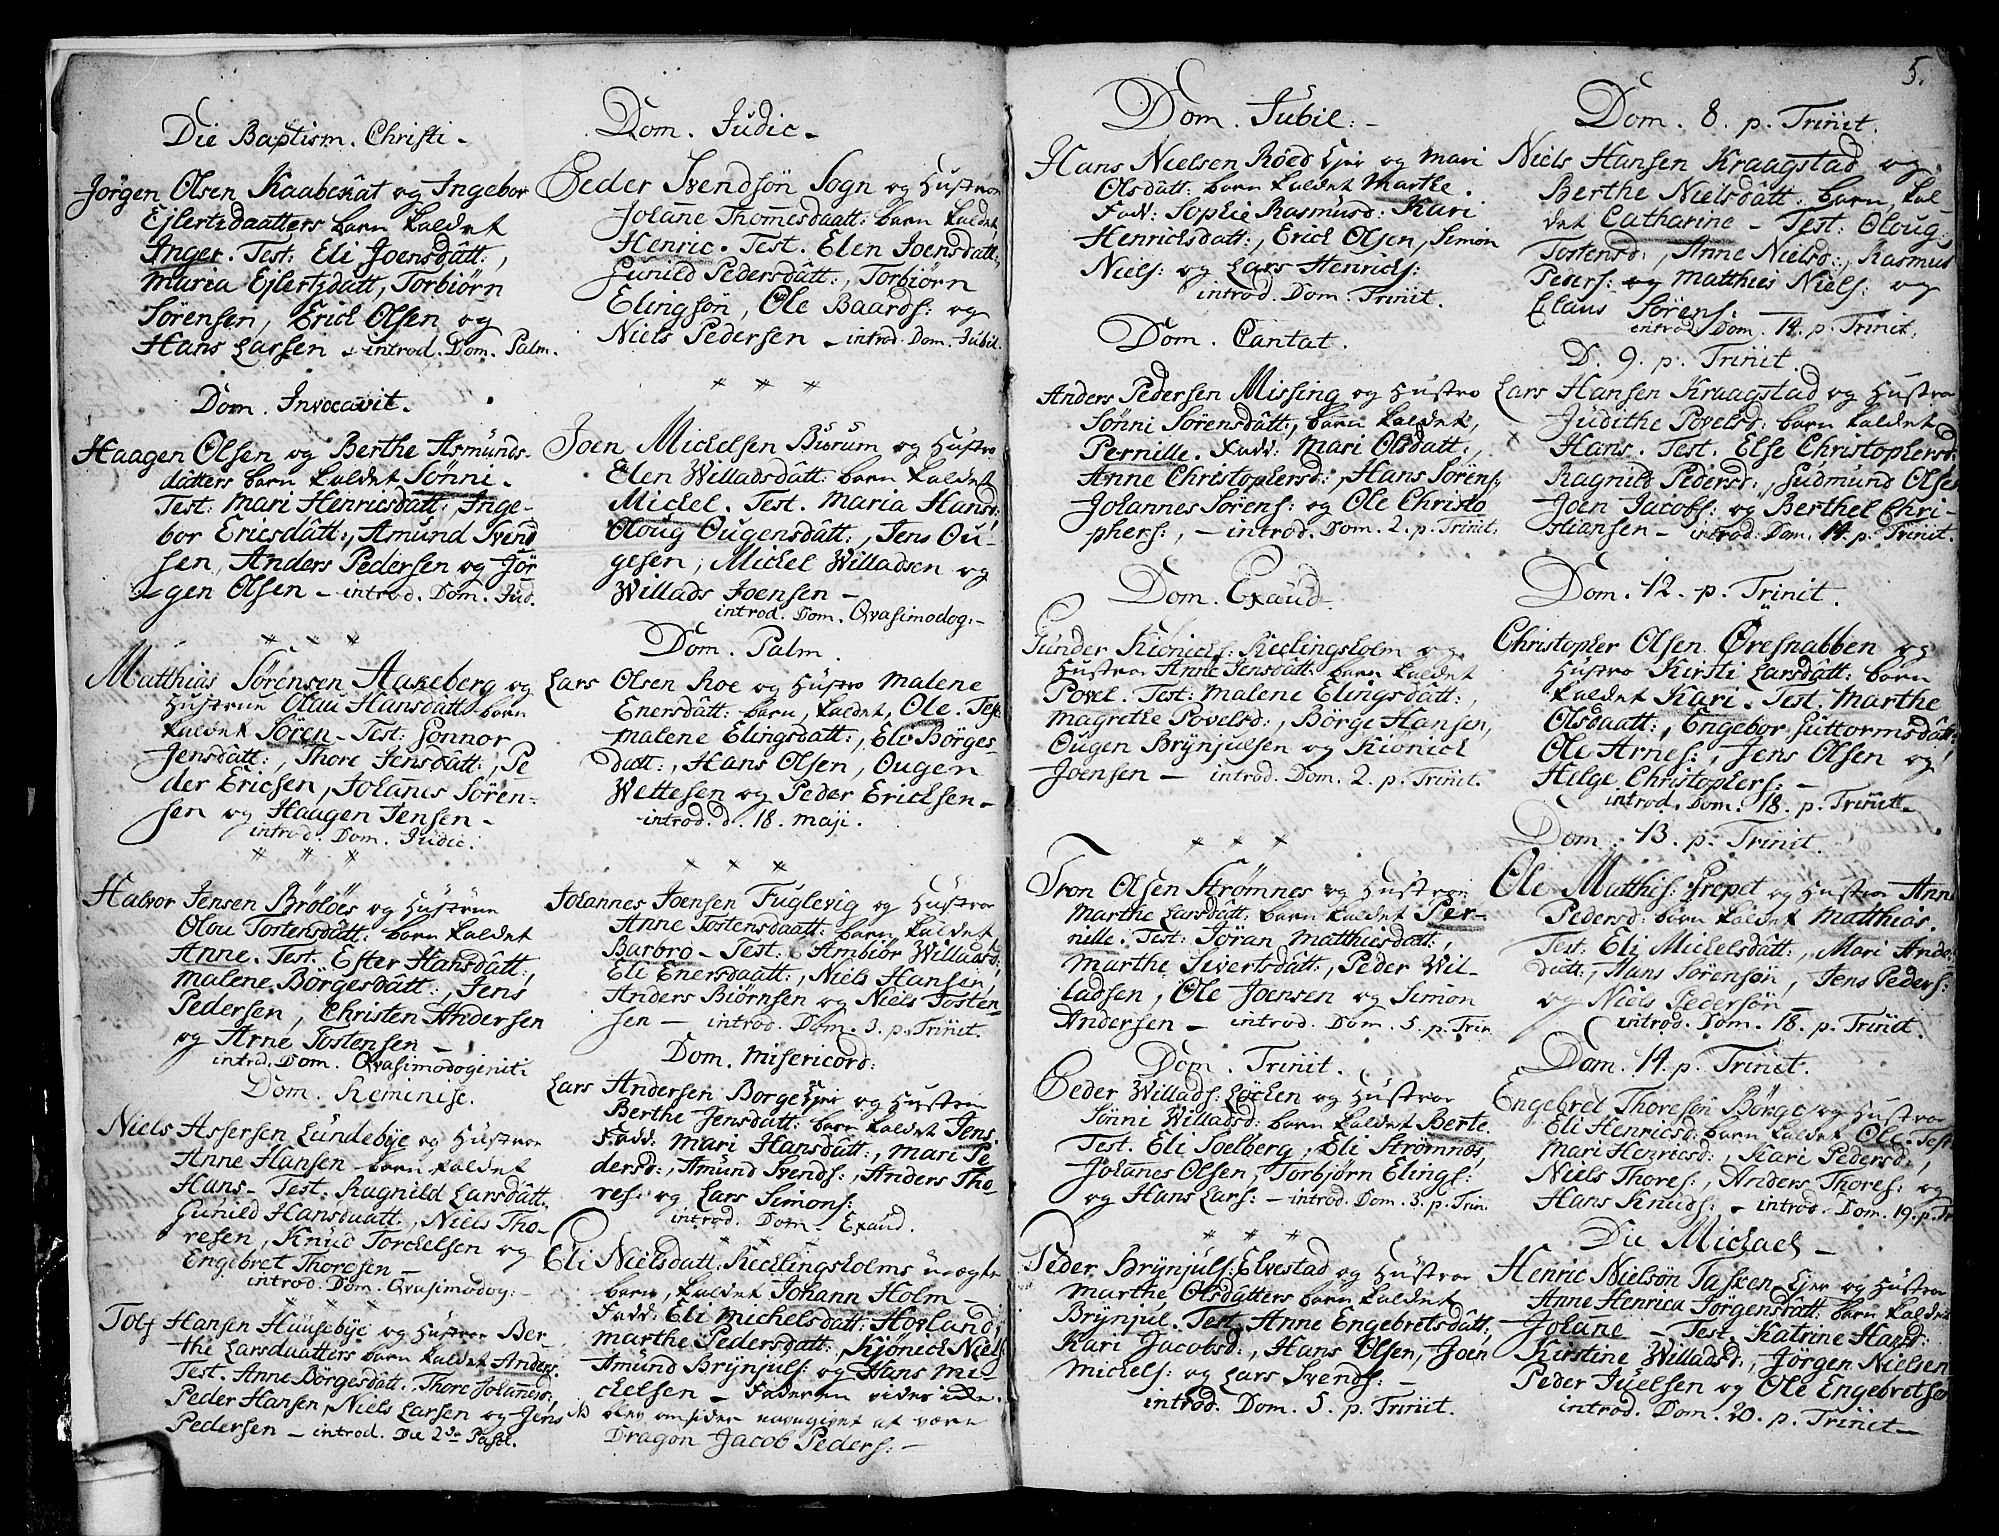 Die Baptism. Christi -
Jörgen Olsen Kaabekat og Ingebor
Ejlertzdaatters barn kaldet
Inger. Test: Eli Joensdått:,
Maria Ejlertzdått, Torbiørn
Sørensen, Erick Olsen og
Hans Larsen - introd. Dom. Palm.
Dom. Invocavit.
Haagen Olsen og Berthe Asmunds-
dåtters barn kaldet Sønni.
Test: Mari Henricsdått:, Inge-
bor Ericsdått:, Amund Svend
sen, Anders Pedersen og Jör
gen Olsen - introd. Dom. Jud.
* * *
Matthias Sørensen Aakeberg og
Hustrue Olau Hansdått. barn
kaldet Søren - Test: Gonnor
Jensdått:, Thore Jensdått:, Pe
der Ericsen, Johanes Sören-
sen og Haagen Jensen -
introd. Dom. Judic.
* * *
Halvor Jensen Bröløes og Hustrue
Olou Tostensdått: barn kaldet
Anne. Test. Ester Hansdått:,
Malene Börgesdått:, Jens
Pedersen, Christen Andersen
og Arne Tostensen -
introd. Dom. Qvasimodogeniti
Dom. Reminise.
Niels Assersen Lundebye og Hustroe
Anne Hansen barn kaldet
Hans - Test. Ragnild Larsdått,
Gunild Hansdaatt., Niels Tho-
resen, Knud Torckelsen og
Engebret Thoresen -
introd. Dom. Qvasimodog:-
* * *
Tolf Hansen Haüsebye og Hustroe Ber
the Larsdaatters barn kaldet Anders.
Test. Anne Börgesdått. Thore Johanes,
Peder Hansen, Niels Larsen og Jens
Pedersen - introd. Die 2da Pasc.
Dom. Judic -
Peder Svendsön Sogn og Hustroe
Johanne Thomesdaatt: barn kaldet
Henric. Test. Elen Joensdatt:,
Gunild Pedersdått:, Torbiørn
Elingsøn, Ole Baards: og
Niels Pedersen - introd. Dom. Jubil.
* * *
Joen Mickelsen Burum og Hustro
Elen Willadsdått: barn kaldet
Mickel. Test. Maria Hansd:,
Oloug Ougensdått:, Jens Ou-
gesen, Mickel Willadsen og
Willads Joensen -
introd. Dom. Qvasimodog:-
Dom. Palm.
Lars Olsen Roe og Hustro Malene
Enersdått: barn, kaldet, Ole. Test
Malene Elingsdatt:, Eli Börges-
dått:, Hans Olsen, Ougen
Wettesen og Peder Ericksen -
introd. d. 18. Maji.
* * *
Johannes Joensen Fuglevig og Hustroe
Anne Tostensdaatt: barn, kaldet
Barbro - Test: Ambiör Willadsd:,
Eli Enersdaatt:, Niels Hansen,
Anders Biörnsen og Niels Tosten-
sen - introd. Dom. 3. p. Trinit.
Dom. Misericord:
Lars Andersen Borge Ejer og Hustroe
Berthe Jensdatt: barn kaldet Jens.
Fadd: Mari Hansdått:, Mari Pe
dersd:, Amund Svends:, Anders Tho-
res: og Lars Simons:
introd. Dom. Exaud.
* * *
Eli Nielsdatt: Keclingsholms uægte
barn, kaldet Johann Holm -
Fadd: Eli Michelsdatt: Hovland,
Marthe Pedersdatt:, Kjönick Niels,
Amund Brynjuls: og Hans Mi-
ckelsen - Faderen vides icke.
NB blev omsider navngivet at være
Dragon Jacob Peders: -
5.
Dom. Jubil: -
Hans Nielsen Röed Ejer og Mari
Olsdatt: barn kaldet Marthe.
Fadd: Sophie Rasmusd: Kari
Henricksdatt:, Erick Olsen, Simon
Niels: og Lars Henrichs:
introd. Dom. Trinit.
Dom. Cantat.
Anders Pedersen Missing og Hustro
Sönni Sörensdått:, barn kaldet,
Pernille. Fadd: Mari Olsdatt:,
Anne Christophersd:, Hans Sörens,
Johannes Sörens: og Ole Christo
phers:, - introd. Dom. 2. p. Trinit.
Dom. Exaud.
Gunder Kionicks: Keclingsholm og
Hustroe Anne Jensdått: barn kaldet
Povel. Test: Malene Elingsdått:,
Magrethe Povelsd:, Börge Hansen,
Ougen Brynjulsen og Kionick
Joensen - introd. Dom. 2. p. Trinit.
* * *
Tron Olsen Strömnes og Hustroe
Marthe Larsdått: barn kaldet Per-
nille. Test: Jöran Matthisdatt:,
Marthe Sivertsdått:, Peder Wil-
ladsen, Ole Joensen og Simon
Andersen - introd. Dom. 5. p. Trin.
Dom. Trinit.
Peder Willads: Löcken og Hustroe
Sönni Willadsd: barn kaldet Berte.
Test. Eli Soelberg, Eli Strömnes,
Johanes Olsen, Torbjørn Elings:
og Hans Lars: - introd. Dom. 3. p. Trin.
* * *
Peder Brynjuls: Elvestad og Hustroe
Marthe Olsdåtters barn kaldet
Brynjul. Test. Anne Engebretsdått,
Kari Jacobsd:, Hans Olsen, Joen
Mickels: og Lars Svends: -
introd. Dom. 5. p. Trinit.
Dom. 8. p. Trinit.
Niels Hansen Kraagstad og
Berthe Nielsdått: barn, kal-
det Catharine - Test: Oloug
Tostensd:, Anne Nielsd:, Rasmus
Peders: og Matthies Niels: og
Claus Sörens: -
introd. Dom. 14. p. Trinit.
D. 9. p. Trinit.
Lars Hansen Kraagstad og Hustroe
Judithe Povelsd: barn kaldet
Hans. Test. Else Christophersd,
Ragnild Pedersd:, Gudmund Olsen
Joen Jacobs: og Berthel Chri-
stiansen - introd. Dom. 14. p. Trinit.
Dom. 12. p. Trinit.
Christopher Olsen Öresnabben og
Hustro Kirsti Larsdått: barn
kaldet Kari. Test. Marthe
Olsdaatt:, Engebor Guttormsdått:
Ole Arnes:, Jens Olsen og
Helge Christophers: -
introd. Dom. 18. p. Trinit -
Dom. 13. p. Trinit.
Ole Matthis: Grepet og Hustroe Anne
Pedersd: barn kaldet Matthias.
Test. Eli Mickelsdått:, Mari Anders
dått:, Hans Sörensøn, Jens Peders:
og Niels Pedersøn -
introd. Dom. 18. p. Trinit.
Dom. 14. p. Trinit.
Engebret Thoresøn Börge og Hustroe
Eli Henricsd: barn kaldet Ole. Test.
Mari Henricsd:, Kari Pedersd:,
Niels Thores:, Anders Thores: og
Hans Knuds: - introd. Dom. 19. p. Tr
Die Michael -
Henric Nielsøn Tasken Ejer og Hustroe
Anne Henrica Jörgensdått. barn kaldet
Johane - Test. Katrine Hansd:
Kirstine Willadsd:, Jörgen Nielsen
Peder Juelsen og Ole Engebretsen
introd. Dom. 20. p. Trinit -